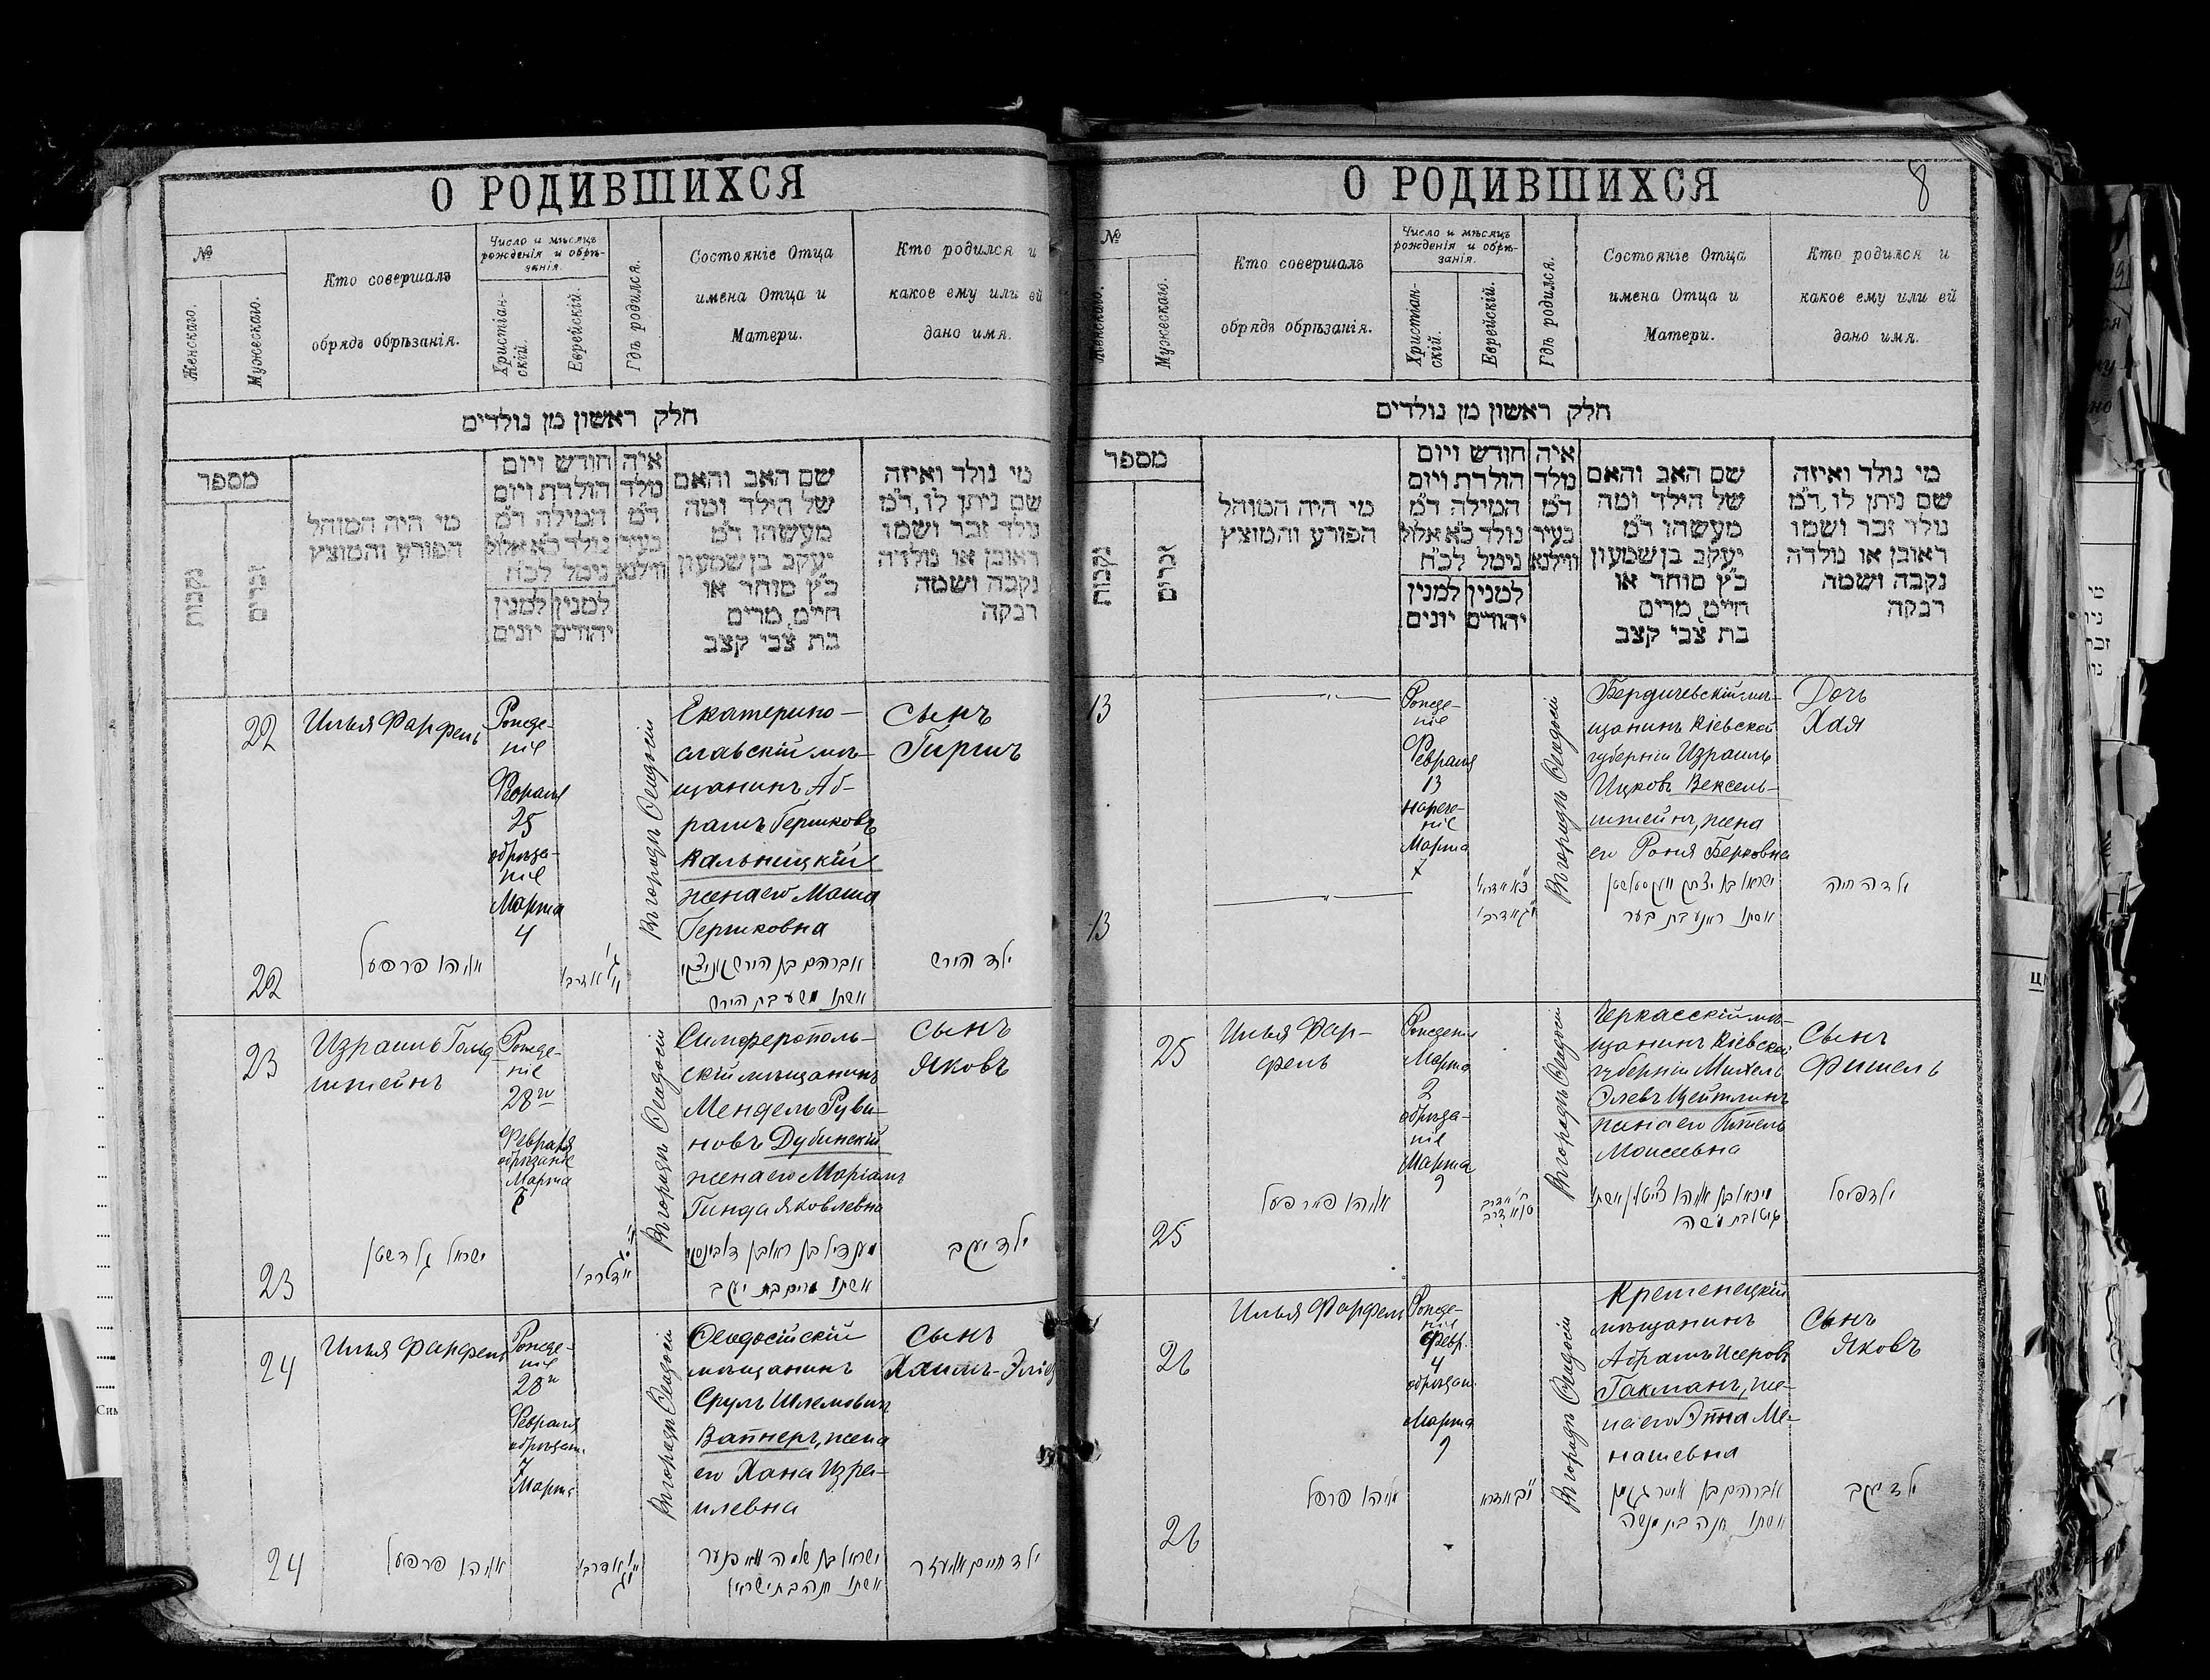 О РОДИВШИХСЯ
№
Женскаго.
Мужескаго.
Кто совершалъ
обрядъ обрѣзанія.
Число и мѣсяцъ
рожденія и обрѣ-
занія.
Христіан-
скій.
Еврейскій.
Гдѣ родился.
Состояніе Отца
имена Отца и
Матери.
Кто родился и
какое ему или ей
дано имя.
חלק ראשון מן נולדים
מספר
נקבות
זכרים
מי היה המוהל
הפורע והמוצץ
חודש ויום
הולדת ויום
המילה ד״מ
נולד כ״א אלול
נימל לכ״ח
למנין למנין
יהודים יונים
איה
מלד
ד״מ
בעיר
ווילנא
שם האב והאם
של הילד ומה
מעשהו ד״מ
יעקב בן שמעון
כ״ץ סוחר או
חייט, מרים
בת צבי קצב
מי נולד ואיזה
שם ניתן לו, ד״מ
נולד זכר ושמו
ראובן או נולדה
נקבה ושמה
רבקה
22
Илья Фарфель
Рожде-
ніе
Февраля
25
обрѣза-
ніе
Марта
4
Въ городѣ Ѳеодосіи
Екатерино-
славскій мѣ-
щанинъ Аб-
рамъ Гершковъ
Кальницкій
жена его Маша
Гершковна
Сынъ
Гиршъ
22
אליהו פרפעל
אשתו מאשע בת הירש
ילד הירש
23
Израиль Гольд
штейнъ
Рожде-
ніе
28го
Февраля
обрѣзаніе
Марта
7
Въ городѣ Ѳеодосіи
Симферополь-
скій мѣщанинъ
Мендель Руви-
новъ Дубинскій
жена его Маріамъ
Гинда Яковлевна
Сынъ
Яковъ
23
ישראל גלדשטן
מענדיל בן ראובן דובינסקי
אשתו מרים בת יעקב
ילד יעקב
24
Илья Фарфель
Рожде-
ніе
28го
Февраля
обрѣзан.
7
Марта
Въ городѣ Ѳеодосіи
Ѳеодосійскій
мѣщанинъ
Сруль Шлемовичъ
Вапнеръ, жена
его Хана Изра-
илевна
Сынъ
Хаимъ-Эліез
24
אליהו פרפעל
ישראל בן שלמה וואפנער
אשתו חנה בת ישראל
ילד חיים אליעזר
О РОДИВШИХСЯ
8
№
Женскаго.
Мужескаго.
Кто совершалъ
обрядъ обрѣзанія.
Число и мѣсяцъ
рожденія и обрѣ-
занія.
Христіан-
скій.
Еврейскій.
Гдѣ родился.
Состояніе Отца
имена Отца и
Матери.
Кто родился и
какое ему или ей
дано имя.
חלק ראשון מן נולדים
מספר
נקבות
זכרים
מי היה המוהל
הפורע והמוצץ
חודש ויום
הולדת ויום
המילה ד״מ
נולד כ״א אלול
נימל לכ״ח
למנין למנין
יהודים יונים
איה
מלד
ד״מ
בעיר
ווילנא
שם האב והאם
של הילד ומה
מעשהו ד״מ
יעקב בן שמעון
כ״ץ סוחר או
חייט, מרים
בת צבי קצב
מי נולד ואיזה
שם ניתן לו, ד״מ
נולד זכר ושמו
ראובן או נולדה
נקבה ושמה
רבקה
13
Рожде-
ніе
Февраля
13
нарече-
ніе
Марта
7
Въ городѣ Ѳеодосіи
Бердичевскій мѣ-
щанинъ Кіевской
губерніи Израиль
Ицковъ Вексель-
штейнъ, жена
его Роня Берковна
Дочь
Хая
13
ישראל בן יצחק וועקסלשטן
אשתו ראניע בת בער
ילדה חיה
25
Илья Фар-
фель
Рожденіе
Марта
2
обрѣза-
ніе
Марта
9
Въ городѣ Ѳеодосіи
Черкасскій мѣ-
щанинъ Кіевской
губерніи Михель
Элевъ Цейтлинъ
жена его Гитель
Моисеевна
Сынъ
Фишель
25
אליהו פארפעל
מיכאל בן אליהו צייטלין אשתו
גיטל בת משה
ילד פישל
26
Илья Фарфель
Рожде-
ніе
Февр.
4
обрѣзан.
Марта
9
Въ городѣ Ѳеодосіи
Кременецкій
мѣщанинъ
Абрамъ Исеровъ
Гакманъ, же-
на его Энна Ме-
нашевна
Сынъ
Яковъ
26
אליהו פרפל
אברהם בן איסר גאקמן
אשתו חנה בת מנשה
ילד יעקב